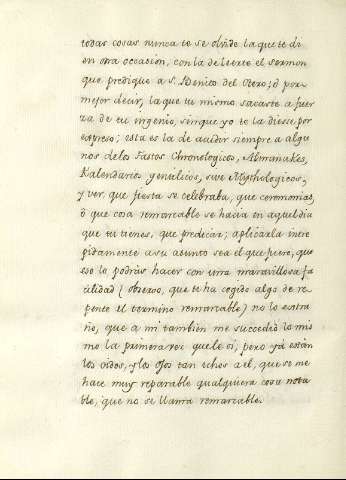 todas cosas nunca te se olvide la que te di
en otra occasion, con la de leerte el sermon
que prediqué a S. Benito del Otero; ò por
mejor decir, la que tu mismo sacaste a fuer
za de tu ingenio, sin que yo te la diesse por
expreso; esta es la de acudir siempre a algu
nos de los Fastos Chronologicos, Almanakes,
Kalendarios gentilicos, sive Mythologicos;
y ver, que fiesta se celebraba, que ceremonias,
ò que cosa remarcable se hacia en aquel dia
que tu tienes, que predicar; aplicarla intre
pidamente a su asunto sea el que fuere, que
eso lo podràs hacer con una maravillosa fa
cilidad (observo, que te ha cogido algo de re
pente el termino remarcable) no lo estra
ño, que a mi tambien me succediò lo mis
mo la primera vez que le oì; pero yà estàn
los oidos, y los ojos tan echos a el, que se me
hace muy reparable qualquiera cosa nota
ble, que no se llama remarcable.